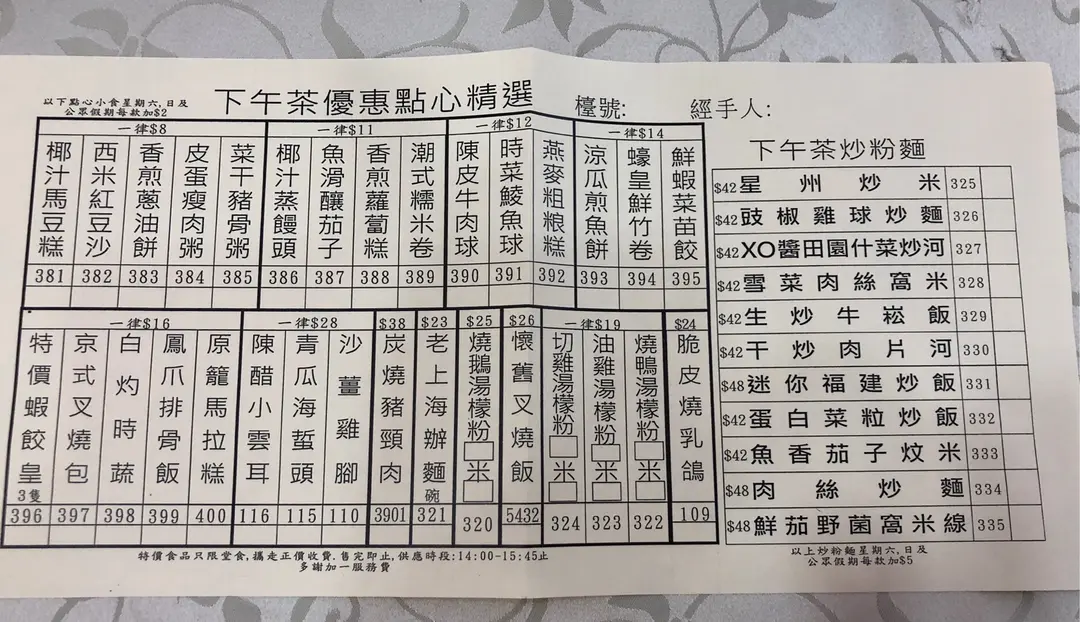 下午茶優惠點心精選
以下點心小食星期六,日及
公眾假期每款加$2
檯號:
經手人:
一律$8
椰汁馬豆糕 381
西米紅豆沙 382
香煎蔥油餅 383
皮蛋瘦肉粥 384
菜干豬骨粥 385
一律$11
椰汁蒸饅頭 386
魚滑釀茄子 387
香煎蘿蔔糕 388
潮式糯米卷 389
一律$12
陳皮牛肉球 390
時菜鯪魚球 391
燕麥粗粮糕 392
一律$14
涼瓜煎魚餅 393
蠔皇鮮竹卷 394
鮮蝦菜苗餃 395
一律$16
特價蝦餃皇 3隻 396
京式叉燒包 397
白灼時蔬 398
鳳爪排骨飯 399
原籠馬拉糕 400
一律$28
陳醋小雲耳 116
青瓜海蜇頭 115
沙薑雞腳 110
$38
炭燒豬頸肉 3901
$23
老上海辦麵 碗 321
$25
燒鵝湯檬粉 米 320
$26
懷舊叉燒飯 5432
一律$19
切雞湯檬粉 米 324
油雞湯檬粉 米 323
燒鴨湯檬粉 米 322
$24
脆皮燒乳鴿 109
特價食品只限堂食,攜走正價收費.售完即止,供應時段:14:00-15:45止
多謝加一服務費
下午茶炒粉麵
$42 星州炒米 325
$42 豉椒雞球炒麵 326
$42 XO醬田園什菜炒河 327
$42 雪菜肉絲窩米 328
$42 生炒牛崧飯 329
$42 干炒肉片河 330
$48 迷你福建炒飯 331
$42 蛋白菜粒炒飯 332
$42 魚香茄子炆米 333
$48 肉絲炒麵 334
$48 鮮茄野菌窩米線 335
以上炒粉麵星期六,日及
公眾假期每款加$5